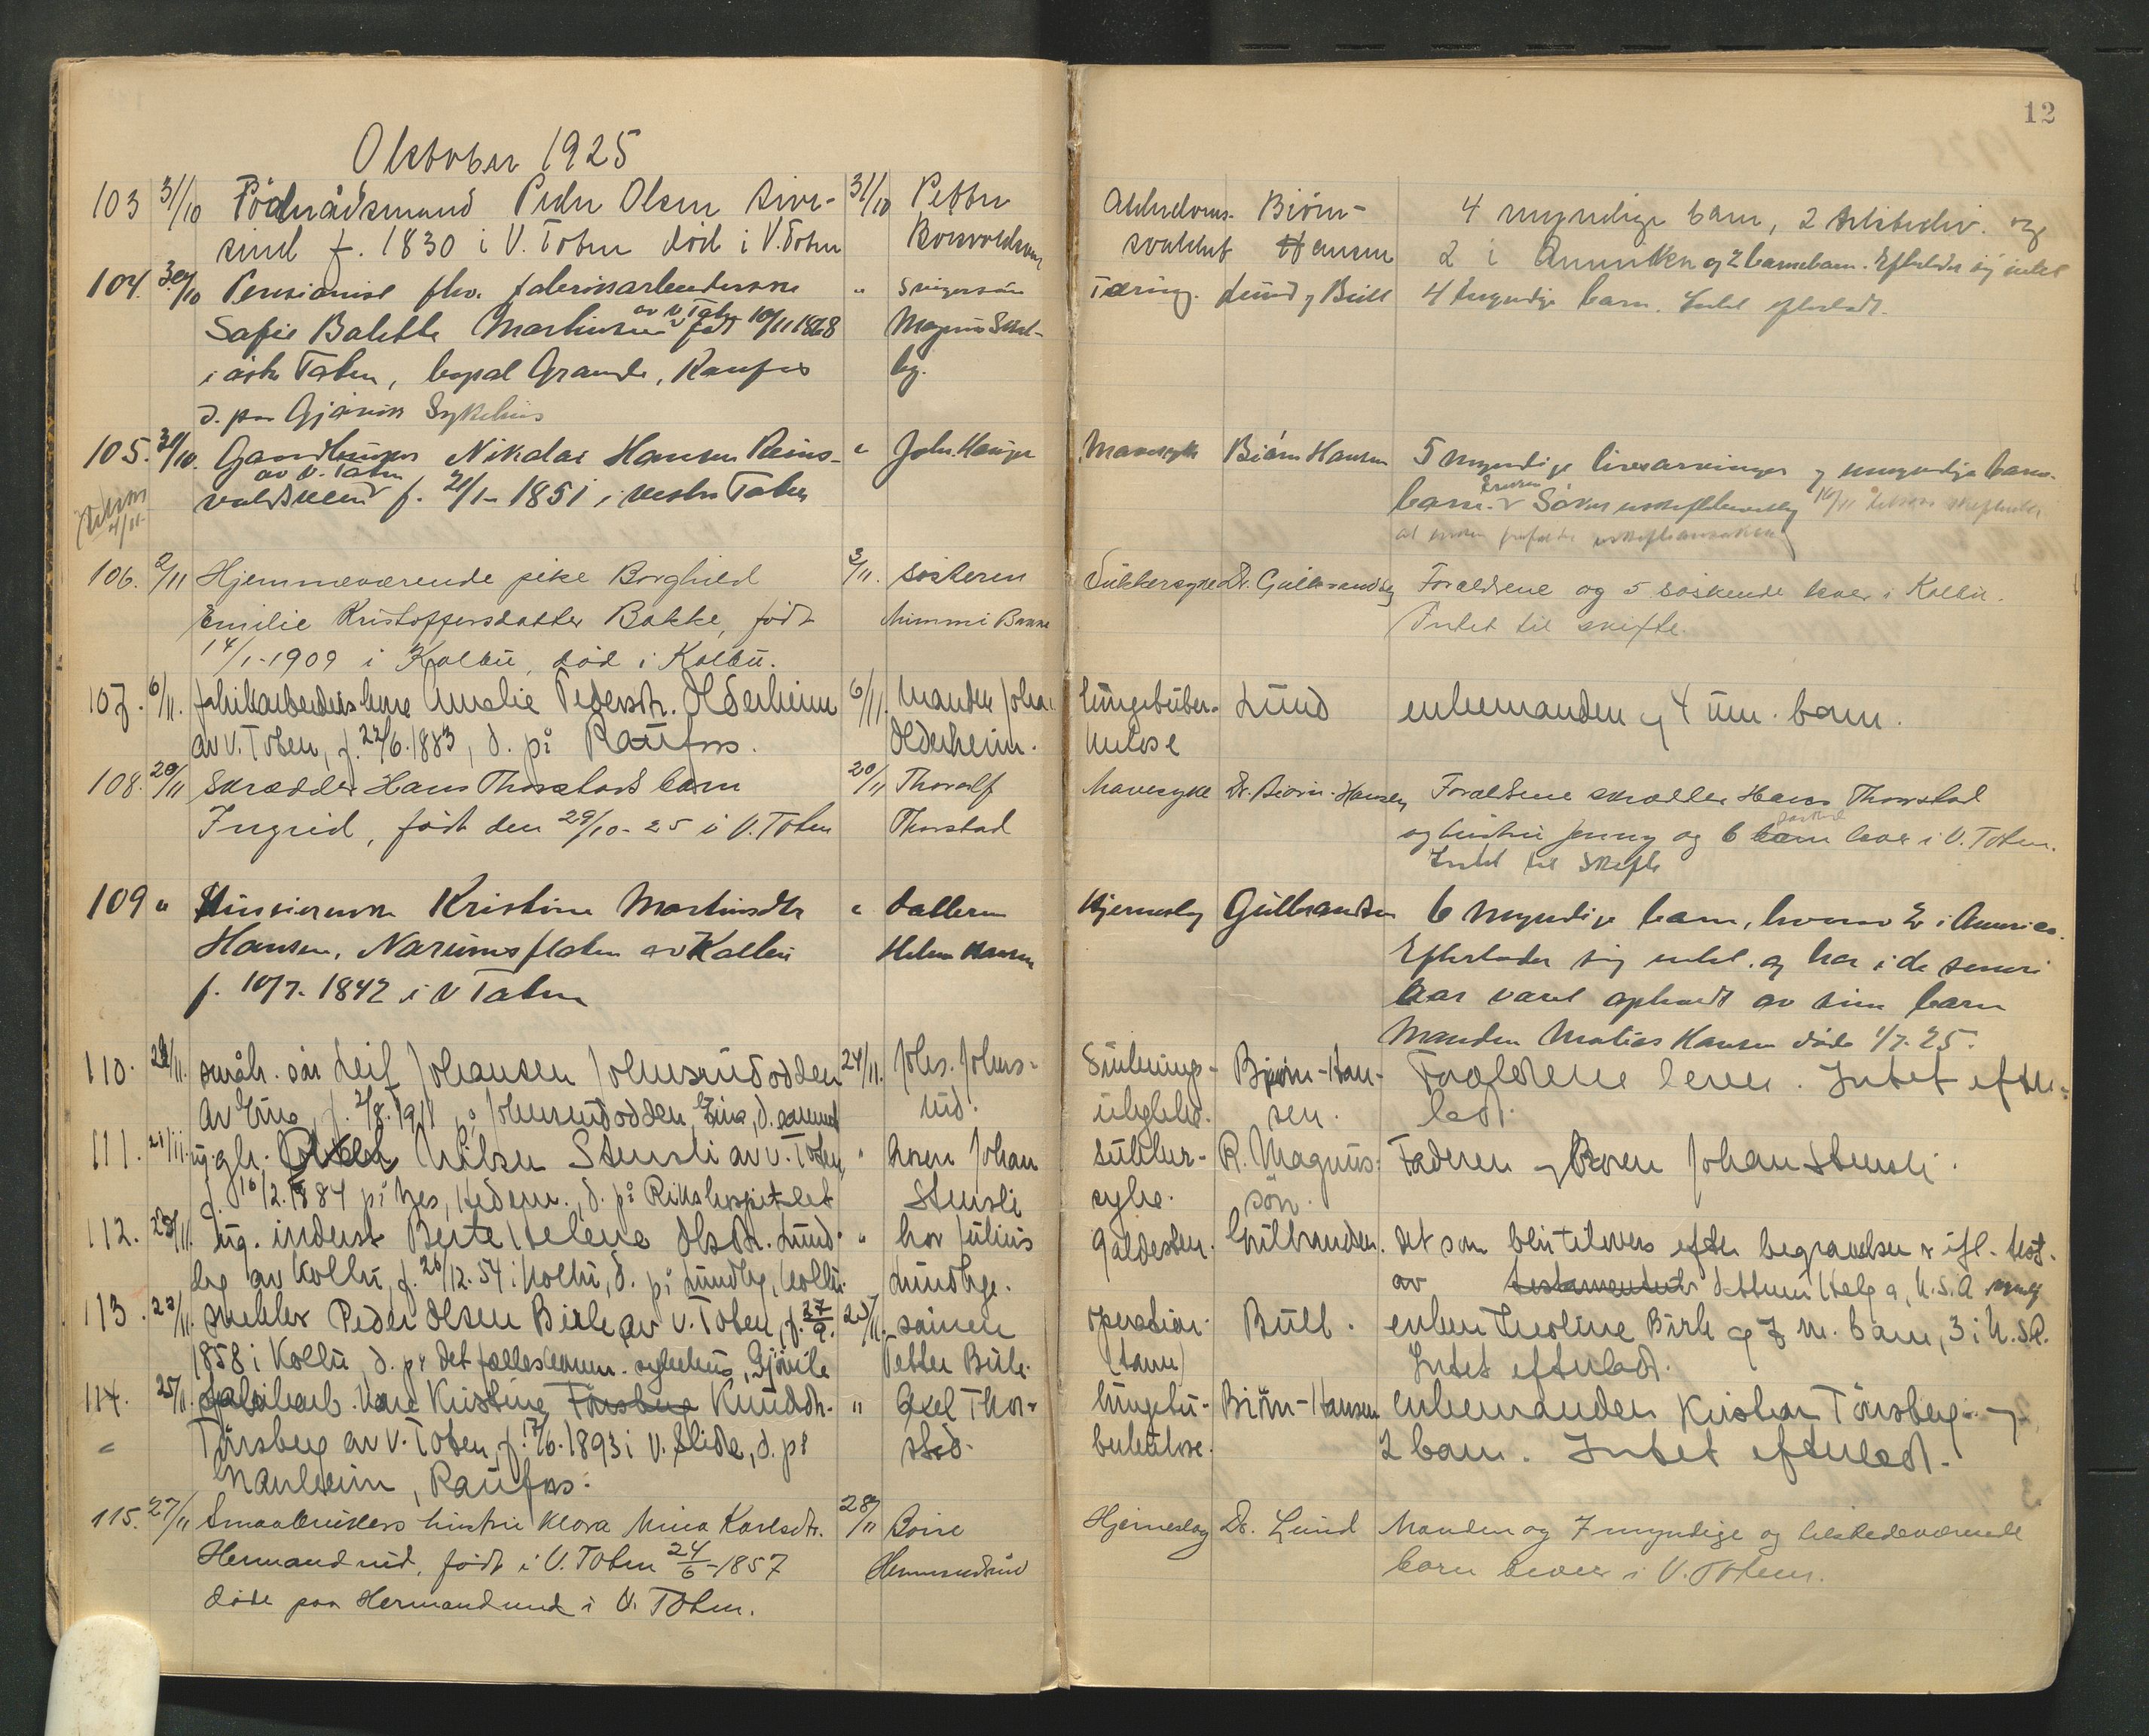 12
Oktober 1925
103 31/10 Födrådsmand Peder Olsen Sive-
sind f. 1830 i V. Toten död i V. Toten
31/10 Petter
Alderdoms- Biörn-
svakhet Hansen
4 myndige barn, 2 tilstedev. og
2 i Amerika og 2 barnebarn. Efterlader sig intet
104. 30/10 Pensionist fhv. fabrikarbeiderske
Sofie Balette Martinsen av V. Toten født 10/11 1868
i østre Toten, bopal Grande, Raufos
d. paa Gjøvik Sykehus
" Svigersøn
Magnus
Tæring. Lund og Bull 4 myndige barn. Intet efterladt.
105. 30/10. Gaardbruker Nikolai Hansen Reins-
voldsveen av V. Toten f. 21/1- 1851 i vestre Toten
" Johs. Hauger
Mavesyk Biørn Hansen 5 myndige livsarvinger og umyndige barne-
barn. Enken Söker uskifte
106. 2/11 Hjemmeværende pike Borghild
Emilie Kristoffersdatter Bakke, født
14/1-1909 i Kolbu, død i Kolbu.
3/11. Søsteren
Mimmi Bakke
Sukkersyke Dr. Gulbrandsen Foraldrene og 5 søskende lever i Kolbu.
Intet til skifte.
107. 6/11. fabrikarbeiders kone Amalie Pedersdtr. Olderheim
av V. Toten, f. 22/6. 1883, d. på Raufoss.
6/11. Manden Johan
Olderheim.
lungetuber-
kulose
Lund enkemanden og 4 um. barn.
108. 20/11 Skrædder Hans Thorstads barn
Ingrid, født den 29/10- 25 i V. Toten
20/11 Thoralf
Thorstad
Mavesyke Dr. Biørn-Hansen Foraldrene skrædder Hans Thorstad
og hustru Jenny og 6 barn lever i V. Toten.
Intet til Skifte
109 " Pensionist Kristine Martinsdtr
Hansen, Narumsflaten av Kolbu
f. 10/7. 1842 i V Toten
" datteren
Helene Hansen
Hjerneslag Gulbrandsen 6 myndige barn, hvorav 2 i Amerika.
Efterlader sig intet og har i de senere
aar været opholdt av sine barn
Manden Matias Hansen døde 1/7. 25.
110. 22/11. småbr. søn Leif Johansen Johnsrudodden
av Eina, f. 2/8. 1911 på Johnsrudodden, Eina, d. sammested
24/11. Johs. Johns-
rud.
Bjørn-Han-
sen.
Foraldrene lever. Intet efter-
ladt.
111. 21/11. Nilsen Stensli av V. Toten,
f. 10/12. 1884 på Nes, Hedem., d. på Rikshospitalet
" broren Johan
Stensli
Sukker-
syke.
R. Magnus-
søn.
Faderen og Broren Johan Stensli.
112. 22/11. ug. inderst Berte Helene Olsdtr. Lund-
by av Kolbu, f. 26/12. 54 i Kolbu, d. på Lundby, Kolbu.
" bror Julius
Lundbye.
Galdesten. Gulbrandsen. det som blir tilovers efter begravelsen er ifl. test.
av testamentets datteren Helga, U.S.A.
113. 23/11. snekker Peder Olsen Birk av V. Toten, f. 27/9.
1858 i Kolbu, d. på det fælleskomm. sykehus, Gjøvik
25/11. sønnen
Petter Birk.
operation
(tarm)
Bull. enken Karoline Birk og 7 m. barn, 3 i U.S.A.
Intet efterladt.
114. 25/11. fabrikarb. kone Kristine Tönsberg Knudsdtr.
Tönsberg av V. Toten, f. 17/6. 1893 i V. Slidre, d. på
Manheim, Raufoss.
" Axel Thor-
stad.
lungetu-
berkulose.
Biörn-Hansen enkemanden Kristian Tönsberg og
2 barn. Intet efterladt.
115. 27/11 Smaabrukers hustru Klara Mina Karlsdtr.
Hermandrud, født i V. Toten 24/6-1857
døde paa Hermandrud i V. Toten.
28/11 Borre
Hermandrud
Hjerneslag Dr. Lund Manden og 7 myndige og tilstedeværende
barn lever i V. Toten.